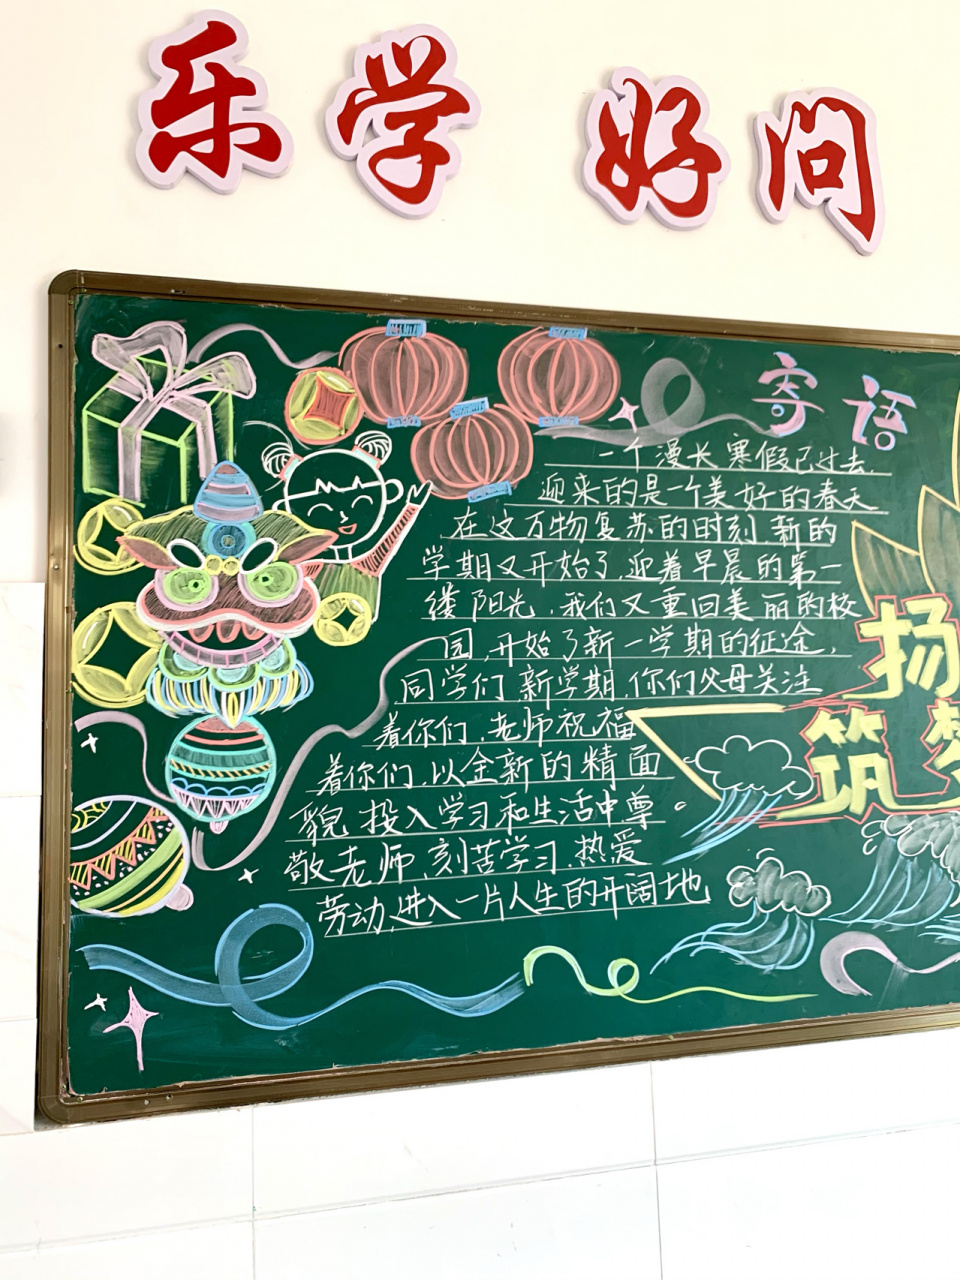 乐学 好问
寄语
一个漫长寒假已过去,
迎来的是一个美好的春天
在这万物复苏的时刻,新的
学期又开始了,迎着早晨的第一
缕阳光,我们又重回美丽的校
园,开始了新一学期的征途,
同学们,新学期,你们父母关注
着你们,老师祝福
着你们,以全新的精面
貌投入学习和生活中尊。
敬老师,刻苦学习,热爱
劳动,进入一片人生的开阔地
扬
筑梦